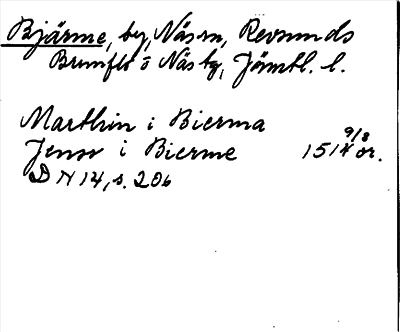 Bjärme, by, Näs sn, Revsunds
Brunflo o Näs tg, Jämtl. l.
Marthin i Bierma
Jenss i Bierme 1514 9/8 or.
D N 14, s. 206